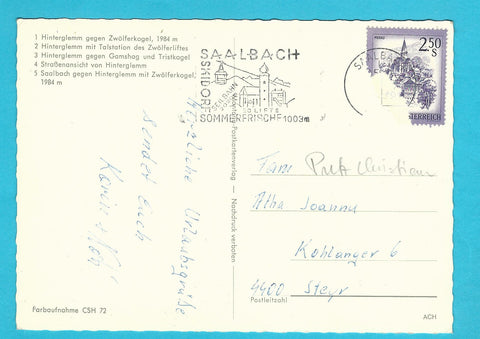 1 Hinterglemm gegen Zwölferkogel, 1984 m
2 Hinterglemm mit Talstation des Zwölferliftes
3 Hinterglemm gegen Gamshag und Tristkogel
4 Straßenansicht von Hinterglemm
5 Saalbach gegen Hinterglemm mit Zwölferkogel,
1984 m
SAALBACH
SKIDORF
SEILBAHN
50 LIFTS
SOMMERFRISCHE 1003m
SAALBACH
2.50
S
ÖSTERREICH
Herzliche Urlaubsgrüße
sendet Euch
Postkartenverlag — Nachdruck verboten
Fam. Christian
Joanna
Kohlanger 6
4400 Steyr
Postleitzahl
Farbaufnahme CSH 72
ACH